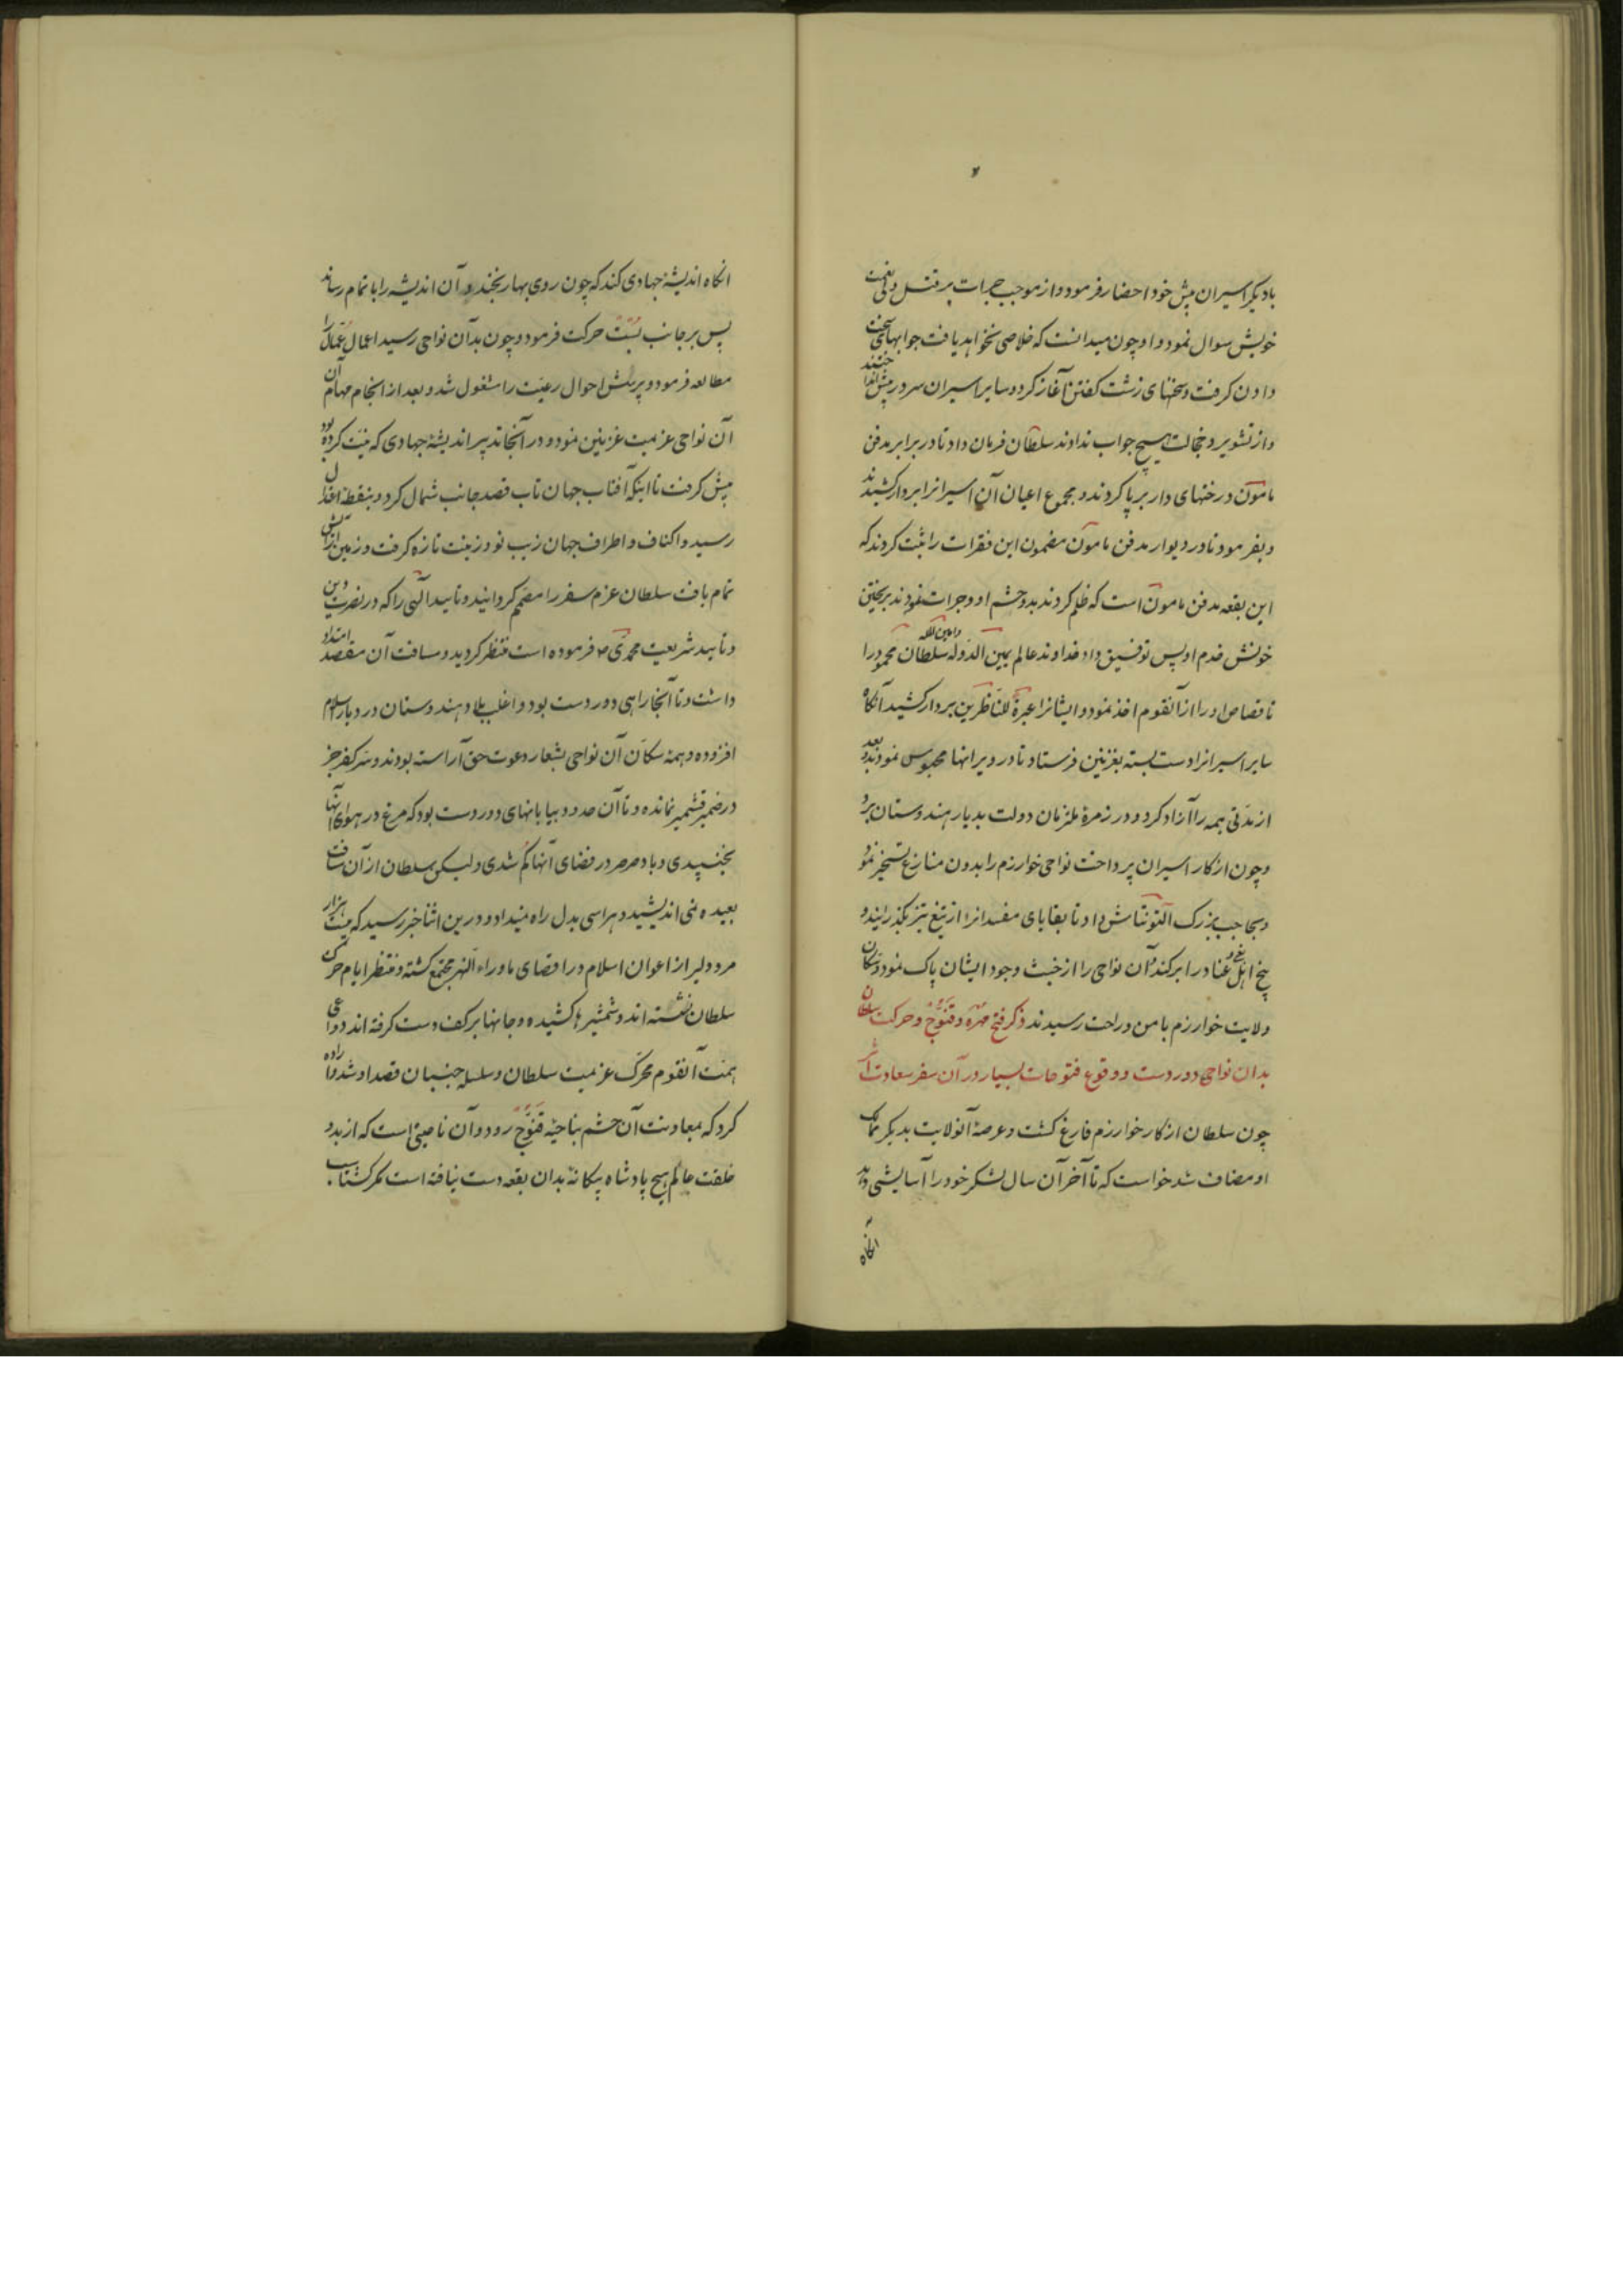 بادیگر اسیران پیش خود احضار فرمود و از موجب جرات بر قتل ولی نعمت
خویش سوال نمود و او چون میدانست که خلاصی نخواهد یافت جوابهای سخت
دادن گرفت و سخنهای زشت گفتن آغاز کرد و سایر اسیران سر در پیش انداختند
و از تشویر و خجالت هیچ جواب ندادند سلطان فرمان داد تا در برابر مدفن
مامون درختهای دار بر پا کردند و مجموع اعیان آن اسیرانرا بردار کشیدند
و بفرمود تا در دیوار مدفن مامون مضمون این فقرات را ثبت کردند که
این بقعه مدفن مامون است که ظلم کردند بدو حشم او و جرات نمودند بریختن
خونش خدم او پس توفیق داد خداوند عالم یمین الدوله و امین المله سلطان محمود را
تا قصاص او را از آنقوم اخذ نمود و ایشانرا عبرة للناظرین بردار کشید آنگاه
سایر اسیرانرا دست بسته بغزنین فرستاد تا در ویرانها محبوس نمودند و بعد
از مدتی همه را آزاد کرد و در زمرهٔ ملزمان دولت بدیار هندوستان برد
و چون از کار اسیران پرداخت نواحی خوارزم را بدون منازع تسخیر نمود
و بحاجب بزرگ التونتاش داد تا بقایای مفسدانرا از تیغ تیز بگذرانید و
بیخ اهل بغی و عناد را برکند و آن نواحی را از خبث وجود ایشان پاک نمود و سکان
ولایت خوارزم بامن و راحت رسیدند ذکر فتح مهره و قنوج و حرکت سلطان
بدان نواحی دوردست و وقوع فتوحات بسیار در آن سفر سعادت اثر
چون سلطان از کار خوارزم فارغ گشت و عرصهٔ آنولایت بدیگر ممالک
او مضاف شد خواست که تا آخر آن سال لشکر خود را آسایشی دهد
انگاه
انگاه اندیشهٔ جهادی کند که چون روی بهار بخندد آن اندیشه را باتمام رساند
پس بر جانب بست حرکت فرمود و چون بدان نواحی رسید اعمال عمال را
مطالعه فرمود و پرسش احوال رعیت را مشغول شد و بعد از انجام مهام آن
آن نواحی عزیمت غزنین نمود و در آنجا تدبیر اندیشهٔ جهادی که نیت کرده بود
پیش گرفت تا اینکه آفتاب جهان تاب قصد جانب شمال کرد و بنقطهٔ اعتدال
رسید و اکناف و اطراف جهان زیب نو و زینت تازه گرفت و زمین آرایش
تمام یافت سلطان عزم سفر را مصمم گردانید و تایید الهی را که در نصرت دین
و تایید شریعت محمدی ص فرموده است منتظر گردید و مسافت آن مقصد امتداد
داشت و تا آنجا راهی دوردست بود و اغلب بلاد هندوستان در دیار اسلام
افزوده و همهٔ سکان آن نواحی بشعار دعوت حق آراسته بودند و سر کفر جز
در ضمیر قشمیر نمانده و تا آن حدود بیابانهای دوردست بود که مرغ در هوای آنها
بجنبیدی و باد صرصر در فضای آنها گم شدی ولیکن سلطان از آن مسافت
بعیده نمی اندیشید و هراسی بدل راه نمیداد و درین اثنا خبر رسید که بیست هزار
مرد دلیر از اعوان اسلام در اقصای ماوراء النهر مجتمع گشته و منتظر ایام حرکت
سلطان نشسته اند و شمشیرها کشیده و جانها بر کف دست گرفته اند دواعی
همت آنقوم محرک عزیمت سلطان و سلسله جنبان قصد او شد و اراده
کرد که بمعاونت آن حشم بناحیهٔ قنوج رود و آن ناحیتی است که از بدو
خلقت عالم هیچ پادشاه بیگانه بدان بقعه دست نیافته است مگر گشتاسب